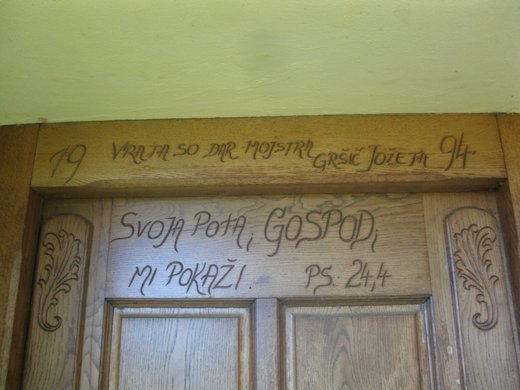 19 VRATA SO DAR MOJSTRA GRŠIČ JOŽETA 94.
SVOJA POTA, GOSPOD,
MI POKAŽI. PS. 24,4